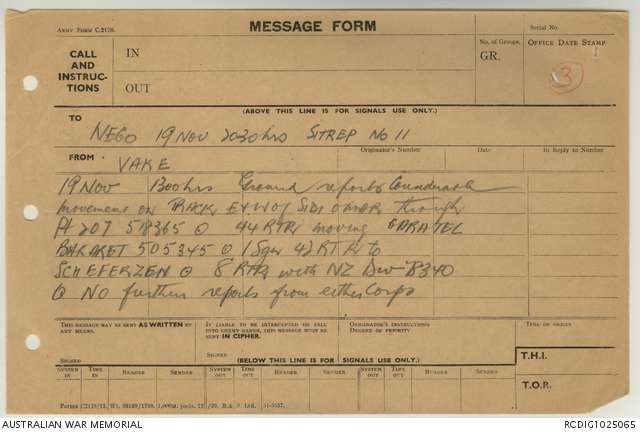 ARMY FORM C.2128.
MESSAGE FORM
Serial No.
CALL AND INSTRUCTIONS
IN
OUT
No. of Groups.
GR.
OFFICE DATE STAMP
3
(ABOVE THIS LINE IS FOR SIGNALS USE ONLY.)
TO
NEGO 19 NOV 2030 hrs SITREP No 11
FROM
Originator's Number
Date
In Reply to Number
VAKE
19 Nov 1300 hrs Ground reports Considerable
movement on TRACK E & W of SIDI OMAR through
Pt 207 518365 @ 44 RTR moving
BARARET 505345 @ 1 Sqn 42 RTR to
SCHEFERZEN @ 8 RTR with NZ Div B340
@ NO further reports from either Corps
THIS MESSAGE MAY BE SENT AS WRITTEN BY ANY MEANS.
IF LIABLE TO BE INTERCEPTED OR FALL INTO ENEMY HANDS, THIS MESSAGE MUST BE SENT IN CIPHER.
ORIGINATOR'S INSTRUCTIONS
DEGREE OF PRIORITY
TIME OF ORIGIN
SIGNED
SIGNED
(BELOW THIS LINE IS FOR SIGNALS USE ONLY.)
T.H.I.
SYSTEM IN
TIME IN
READER
SENDER
SYSTEM OUT
TIME OUT
READER
SENDER
SYSTEM OUT
TIME OUT
READER
SENDER
T.O.R.
AUSTRALIAN WAR MEMORIAL
RCDIG1025065